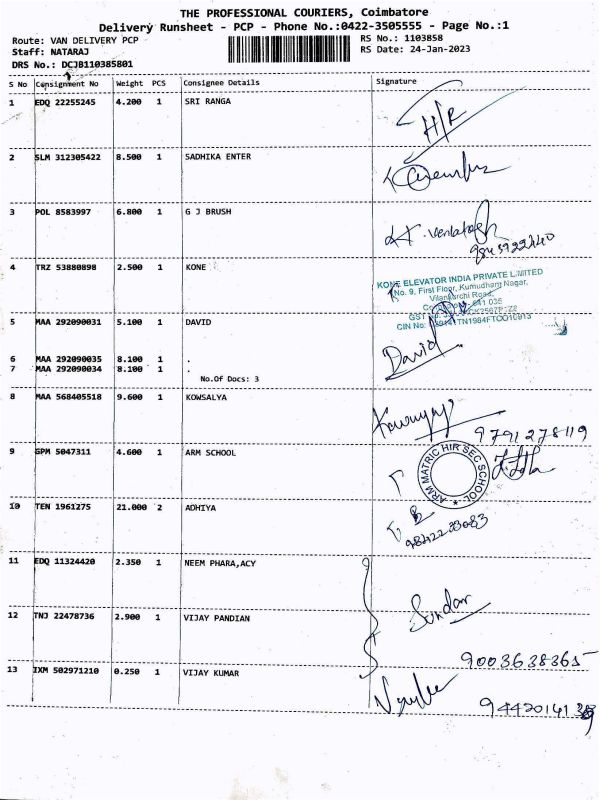 THE PROFESSIONAL COURIERS, Coimbatore
Delivery Runsheet - PCP - Phone No.:0422-3505555 - Page No.:1
Route: VAN DELIVERY PCP RS No.: 1103858
Staff: NATARAJ RS Date: 24-Jan-2023
DRS No.: DCJB110385801
S No Consignment No Weight PCS Consignee Details Signature
1 EDQ 22255245 4.200 1 SRI RANGA
H/R
2 SLM 312305422 8.500 1 SADHIKA ENTER
3 POL 8583997 6.800 1 G J BRUSH
4 TRZ 53880898 2.500 1 KONE
KONE ELEVATOR INDIA PRIVATE LIMITED
No. 9, First Floor, Kumudham Nagar,
Vilankurichi Road,
641 035
GST
CIN No:
5 MAA 292090031 5.100 1 DAVID
David
6 MAA 292090035 8.100 1 .
7 MAA 292090034 8.100 1 .
No.Of Docs: 3
8 MAA 568405518 9.600 1 KOWSALYA
9791278119
9 GPM 5047311 4.600 1 ARM SCHOOL
ARM MATRIC HIR SEC SCHOOL
10 TEN 1961275 21.000 2 ADHIYA
11 EDQ 11324420 2.350 1 NEEM PHARA,ACY
Sundar
12 TNJ 22478736 2.900 1 VIJAY PANDIAN
9003638365
13 IXM 502971210 0.250 1 VIJAY KUMAR